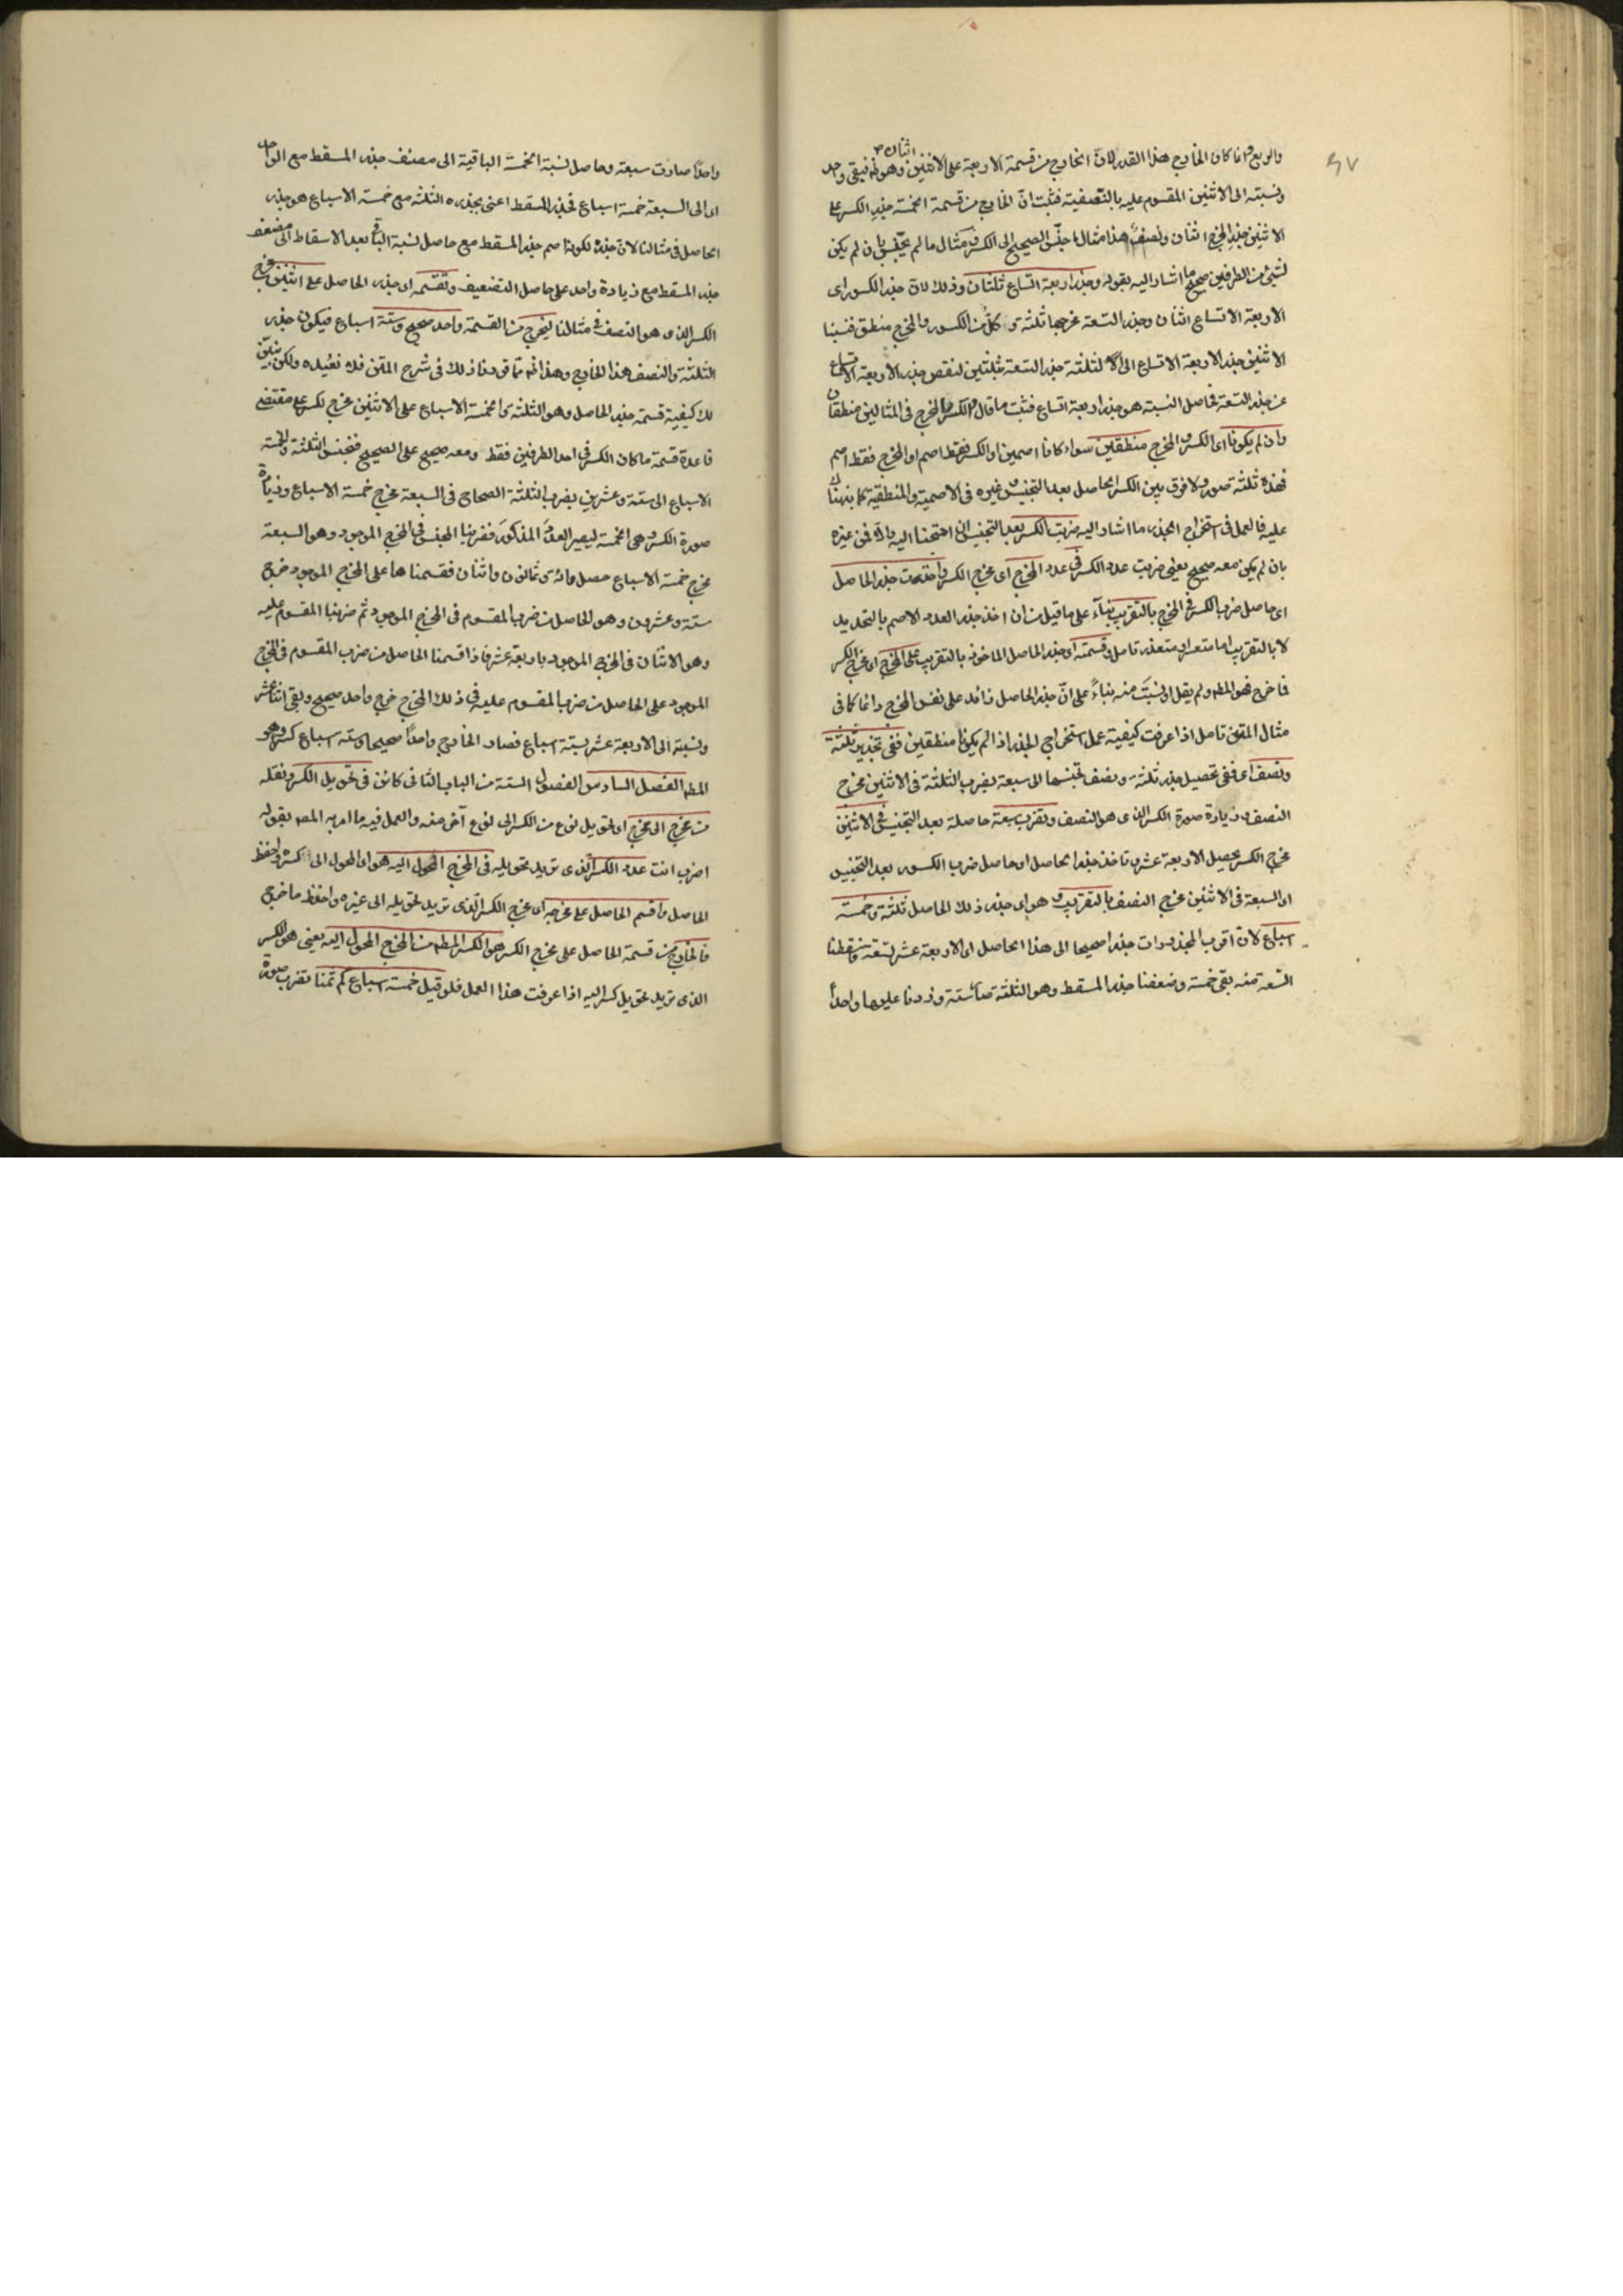 والربع وانما كان الخارج هذا القدر لان الخارج من قسمة الاربعة على الاثنين وهو اثنان فيبقى واحد
ونسبته الى الاثنين المقسوم عليه بالنصفية فثبت ان الخارج من قسمة الخمسة جذر الكسر على
الاثنين جذر المخرج اثنان ونصف هذا مثال ما جنس الصحيح الى الكسر ومثال ما لم يجنس بان لم يكن
لشيئ من الطرفين صحيح ما اشار اليه بقوله وجذر اربعة اتساع ثلثان وذلك لان جذر الكسور اى
الاربعة الاتساع اثنان وجذر التسعة مخرجها ثلثة وكل من الكسور والمخرج منطق فنسبنا
الاثنين جذر الاربعة الاتساع الى الثلثة جذر التسعة بثلثين لنقص جذر الاربعة الاتساع
عن جذر التسعة فحاصل النسبة هو جذر اربعة اتساع فثبت ما قال والكسر والمخرج فى المثالين منطقان
وان لم يكونا اى الكسر والمخرج منطقين سواء كانا اصمين او الكسر فقط اصم او المخرج فقط اصم
فهذه ثلثة صور ولا فرق بين الكسر الحاصل بعد التجنيس وغيره فى الاصمية والمنطقية كما نبهناك
عليه فالعمل فى استخراج الجذر ما اشار اليه ضربت الكسر بعد التجنيس ان احتجنا اليه والا فمن غيره
بان لم يكن معه صحيح يعنى ضربت عدد الكسر فى عدد المخرج اى مخرج الكسر واخذت جذر الحاصل
اى حاصل ضرب الكسر فى المخرج بالتقريب بناء على ما قيل من ان اخذ جذر العدد الاصم بالتحديد
لا بالتقريب اما متعسر او متعذر تامل وقسمته اى جذر الحاصل الماخوذ بالتقريب على المخرج اى مخرج الكسر
فما خرج فهو المطلوب ولم يقل او نسبت منه بناء على ان جذر الحاصل زائد على نفس المخرج دائما كما فى
مثال المتن تامل اذا عرفت كيفية عمل استخراج الجذر اذا لم يكونا منطقين ففى تجذير ثلثة
ونصف اى ففى تحصيل جذر ثلثة ونصف تجنسها الى سبعة بضرب الثلثة فى الاثنين مخرج
النصف وزيادة صورة الكسر الذى هو النصف وتضرب سبعة حاصلة بعد التجنيس فى الاثنين
مخرج الكسر يحصل الاربعة عشر وتاخذ جذر الحاصل اى حاصل ضرب الكسور بعد التجنيس
اى السبعة فى الاثنين مخرج النصف بالتقريب وهو اى جذر ذلك الحاصل ثلثة وخمسة
اسباع لان اقرب المجذورات جذرا صحيحا الى هذا الحاصل اى الاربعة عشر تسعة واسقطنا
التسعة منه بقى خمسة وضعفنا جذر المسقط وهو الثلثة صار ستة وزدنا عليها واحدا
واحدا صارت سبعة وحاصل نسبة الخمسة الباقية الى مضعف جذر المسقط مع الواحد
اى الى السبعة خمسة اسباع فجذر المسقط اعنى بجذره الثلثة مع خمسة الاسباع هو جذر
الحاصل فى مثالنا لان جذره لكونه اصم جذر المسقط مع حاصل نسبة الباقى بعد الاسقاط الى مضعف
جذر المسقط مع زيادة واحد على حاصل التضعيف وتقسمه اى جذر الحاصل على اثنين مخرج
الكسر الذى هو النصف فى مثالنا ليخرج من القسمة واحد صحيح وستة اسباع فيكون جذر
الثلثة والنصف هذا الخارج وهذا انه مما قدمنا ذلك فى شرح المتن فلا نعيده ولكن نبين
لك كيفية قسمة جذر الحاصل وهو الثلثة والخمسة الاسباع على الاثنين مخرج الكسر على مقتضى
قاعدة قسمة ما كان الكسر فى احد الطرفين فقط ومعه صحيح على الصحيح فنجنس الثلثة والخمسة
الاسباع الى ستة وعشرين بضرب الثلثة الصحاح فى السبعة مخرج خمسة الاسباع وزيادة
صورة الكسر وهى الخمسة ليصير العدد المذكور فضربنا المجنس فى المخرج الموجود وهو السبعة
مخرج خمسة الاسباع حصل مائة وثمانون واثنان فقسمناها على المخرج الموجود خرج
ستة وعشرون وهو الحاصل من ضرب المقسوم فى المخرج الموجود ثم ضربنا المقسوم عليه
وهو الاثنان فى المخرج الموجود باربعة عشر فاذا قسمنا الحاصل من ضرب المقسوم فى المخرج
الموجود على الحاصل من ضرب المقسوم عليه فى ذلك المخرج خرج واحد صحيح وبقى اثنا عشر
ونسبته الى الاربعة عشر بستة اسباع فصار الخارج واحدا صحيحا وستة اسباع كسر وهو
المطلوب الفصل السادس من الفصول الستة من الباب الثانى كائن فى تحويل الكسر ونقله
من مخرج الى مخرج اى تحويل نوع من الكسر الى نوع آخر منه والعمل فيه ما امر به المصنف بقوله
اضرب انت عدد الكسر الذى تريد تحويله فى المخرج المحول اليه هو اى المحول الى كسره واحفظ
الحاصل واقسم الحاصل على مخرجه اى مخرج الكسر الذى تريد تحويله الى غيره واحفظ ما خرج
فالخارج من قسمة الحاصل على مخرج الكسر هو الكسر المطلوب من المخرج المحول اليه يعنى هو الكسر
الذى تريد تحويل كسر اليه اذا عرفت هذا العمل فلو قيل خمسة اسباع كم ثمنا تضرب صورة